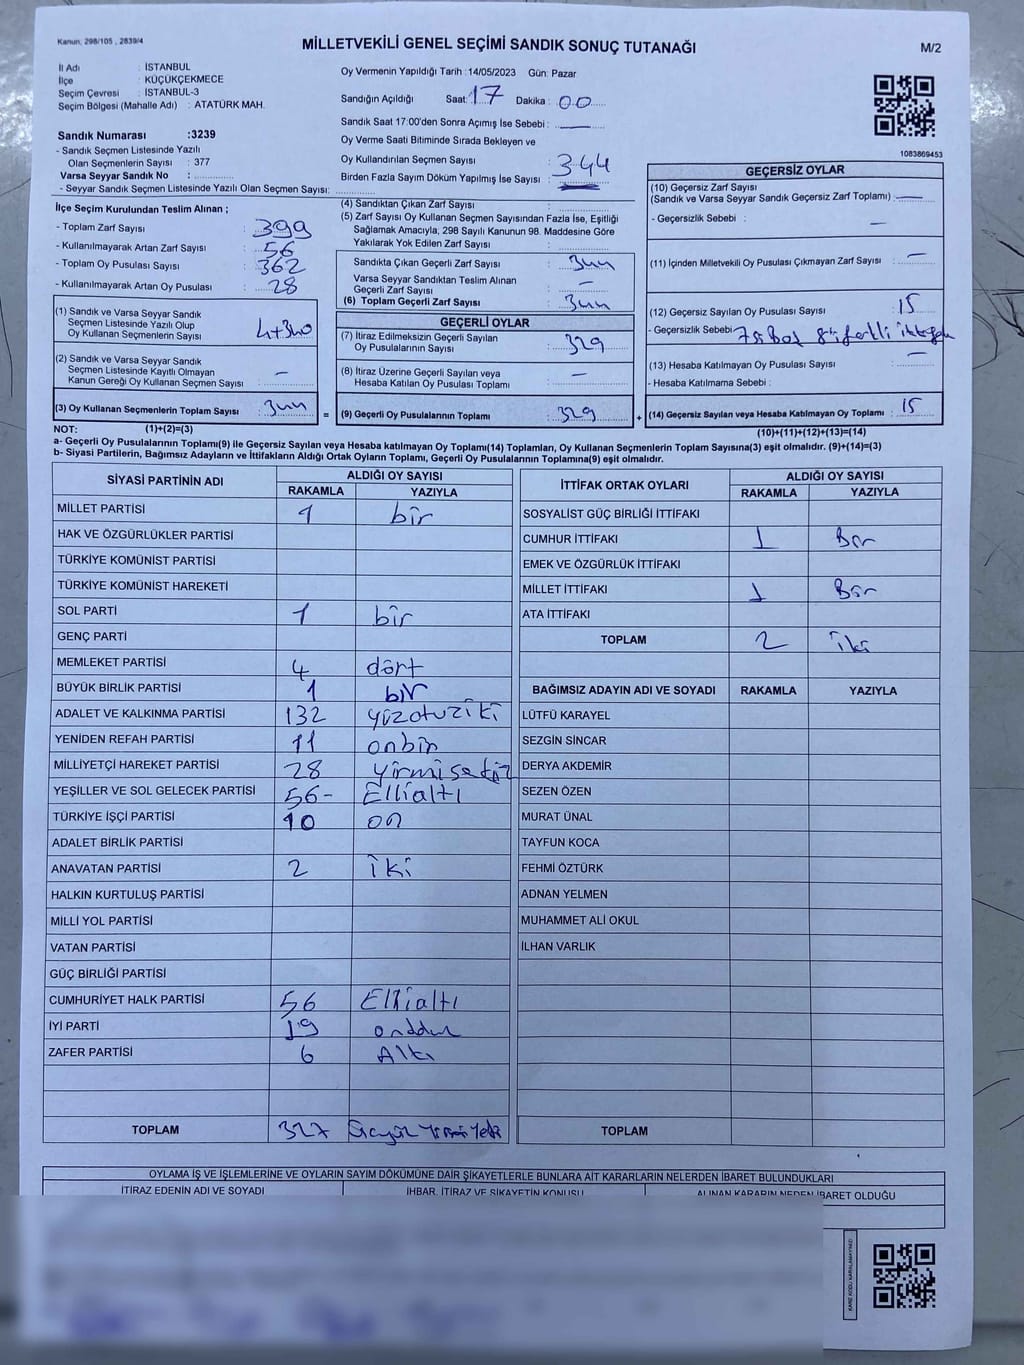 Kanun, 298/105 , 2839/4
MİLLETVEKİLİ GENEL SEÇİMİ SANDIK SONUÇ TUTANAĞI
M/2
İl Adı : İSTANBUL
İlçe : KÜÇÜKÇEKMECE
Seçim Çevresi : İSTANBUL-3
Seçim Bölgesi (Mahalle Adı) : ATATÜRK MAH.
Sandık Numarası :3239
- Sandık Seçmen Listesinde Yazılı
Olan Seçmenlerin Sayısı : 377
Varsa Seyyar Sandık No :
- Seyyar Sandık Seçmen Listesinde Yazılı Olan Seçmen Sayısı:
Oy Vermenin Yapıldığı Tarih :14/05/2023 Gün: Pazar
Sandığın Açıldığı Saat: 17 Dakika : 00
Sandık Saat 17:00'den Sonra Açımış İse Sebebi :
Oy Verme Saati Bitiminde Sırada Bekleyen ve
Oy Kullandırılan Seçmen Sayısı : 344
Birden Fazla Sayım Döküm Yapılmış İse Sayısı :
1083869453
İlçe Seçim Kurulundan Teslim Alınan ;
- Toplam Zarf Sayısı : 399
- Kullanılmayarak Artan Zarf Sayısı : 56
- Toplam Oy Pusulası Sayısı : 362
- Kullanılmayarak Artan Oy Pusulası : 28
(1) Sandık ve Varsa Seyyar Sandık
Seçmen Listesinde Yazılı Olup
Oy Kullanan Seçmenlerin Sayısı : 4+340
(2) Sandık ve Varsa Seyyar Sandık
Seçmen Listesinde Kayıtlı Olmayan
Kanun Gereği Oy Kullanan Seçmen Sayısı : -
(3) Oy Kullanan Seçmenlerin Toplam Sayısı : 344
(4) Sandıktan Çıkan Zarf Sayısı :
(5) Zarf Sayısı Oy Kullanan Seçmen Sayısından Fazla İse, Eşitliği
Sağlamak Amacıyla, 298 Sayılı Kanunun 98. Maddesine Göre
Yakılarak Yok Edilen Zarf Sayısı :
Sandıkta Çıkan Geçerli Zarf Sayısı : 344
Varsa Seyyar Sandıktan Teslim Alınan
Geçerli Zarf Sayısı : -
(6) Toplam Geçerli Zarf Sayısı : 344
GEÇERLİ OYLAR
(7) İtiraz Edilmeksizin Geçerli Sayılan
Oy Pusulalarının Sayısı : 329
(8) İtiraz Üzerine Geçerli Sayılan veya
Hesaba Katılan Oy Pusulası Toplamı : -
= (9) Geçerli Oy Pusulalarının Toplamı : 329 +
GEÇERSİZ OYLAR
(10) Geçersiz Zarf Sayısı
(Sandık ve Varsa Seyyar Sandık Geçersiz Zarf Toplamı) : -
- Geçersizlik Sebebi : -
(11) İçinden Milletvekili Oy Pusulası Çıkmayan Zarf Sayısı : -
(12) Geçersiz Sayılan Oy Pusulası Sayısı : 15
- Geçersizlik Sebebi :
(13) Hesaba Katılmayan Oy Pusulası Sayısı : -
- Hesaba Katılmama Sebebi :
(14) Geçersiz Sayılan veya Hesaba Katılmayan Oy Toplamı : 15
NOT: (1)+(2)=(3)
(10)+(11)+(12)+(13)=(14)
a- Geçerli Oy Pusulalarının Toplamı(9) ile Geçersiz Sayılan veya Hesaba katılmayan Oy Toplamı(14) Toplamları, Oy Kullanan Seçmenlerin Toplam Sayısına(3) eşit olmalıdır. (9)+(14)=(3)
b- Siyasi Partilerin, Bağımsız Adayların ve İttifakların Aldığı Ortak Oyların Toplamı, Geçerli Oy Pusulalarının Toplamına(9) eşit olmalıdır.
SİYASİ PARTİNİN ADI ALDIĞI OY SAYISI
RAKAMLA YAZIYLA
MİLLET PARTİSİ 1 bir
HAK VE ÖZGÜRLÜKLER PARTİSİ
TÜRKİYE KOMÜNİST PARTİSİ
TÜRKİYE KOMÜNİST HAREKETİ
SOL PARTİ 1 bir
GENÇ PARTİ
MEMLEKET PARTİSİ 4 dört
BÜYÜK BİRLİK PARTİSİ 1 bir
ADALET VE KALKINMA PARTİSİ 132 yüzotuziki
YENİDEN REFAH PARTİSİ 11 onbir
MİLLİYETÇİ HAREKET PARTİSİ 28 yirmisekiz
YEŞİLLER VE SOL GELECEK PARTİSİ 56- Ellialtı
TÜRKİYE İŞÇİ PARTİSİ 10 on
ADALET BİRLİK PARTİSİ
ANAVATAN PARTİSİ 2 iki
HALKIN KURTULUŞ PARTİSİ
MİLLİ YOL PARTİSİ
VATAN PARTİSİ
GÜÇ BİRLİĞİ PARTİSİ
CUMHURİYET HALK PARTİSİ 56 Ellialtı
İYİ PARTİ 19
ZAFER PARTİSİ 6 Altı
TOPLAM 327
İTTİFAK ORTAK OYLARI ALDIĞI OY SAYISI
RAKAMLA YAZIYLA
SOSYALİST GÜÇ BİRLİĞİ İTTİFAKI
CUMHUR İTTİFAKI 1 Bir
EMEK VE ÖZGÜRLÜK İTTİFAKI
MİLLET İTTİFAKI 1 Bir
ATA İTTİFAKI
TOPLAM 2 iki
BAĞIMSIZ ADAYIN ADI VE SOYADI RAKAMLA YAZIYLA
LÜTFÜ KARAYEL
SEZGİN SİNCAR
DERYA AKDEMİR
SEZEN ÖZEN
MURAT ÜNAL
TAYFUN KOCA
FEHMİ ÖZTÜRK
ADNAN YELMEN
MUHAMMET ALİ OKUL
İLHAN VARLIK
TOPLAM
OYLAMA İŞ VE İŞLEMLERİNE VE OYLARIN SAYIM DÖKÜMÜNE DAİR ŞİKAYETLERLE BUNLARA AİT KARARLARIN NELERDEN İBARET BULUNDUKLARI
İTİRAZ EDENİN ADI VE SOYADI İHBAR, İTİRAZ VE ŞİKAYETİN KONUSU ALINAN KARARIN NEDEN İBARET OLDUĞU